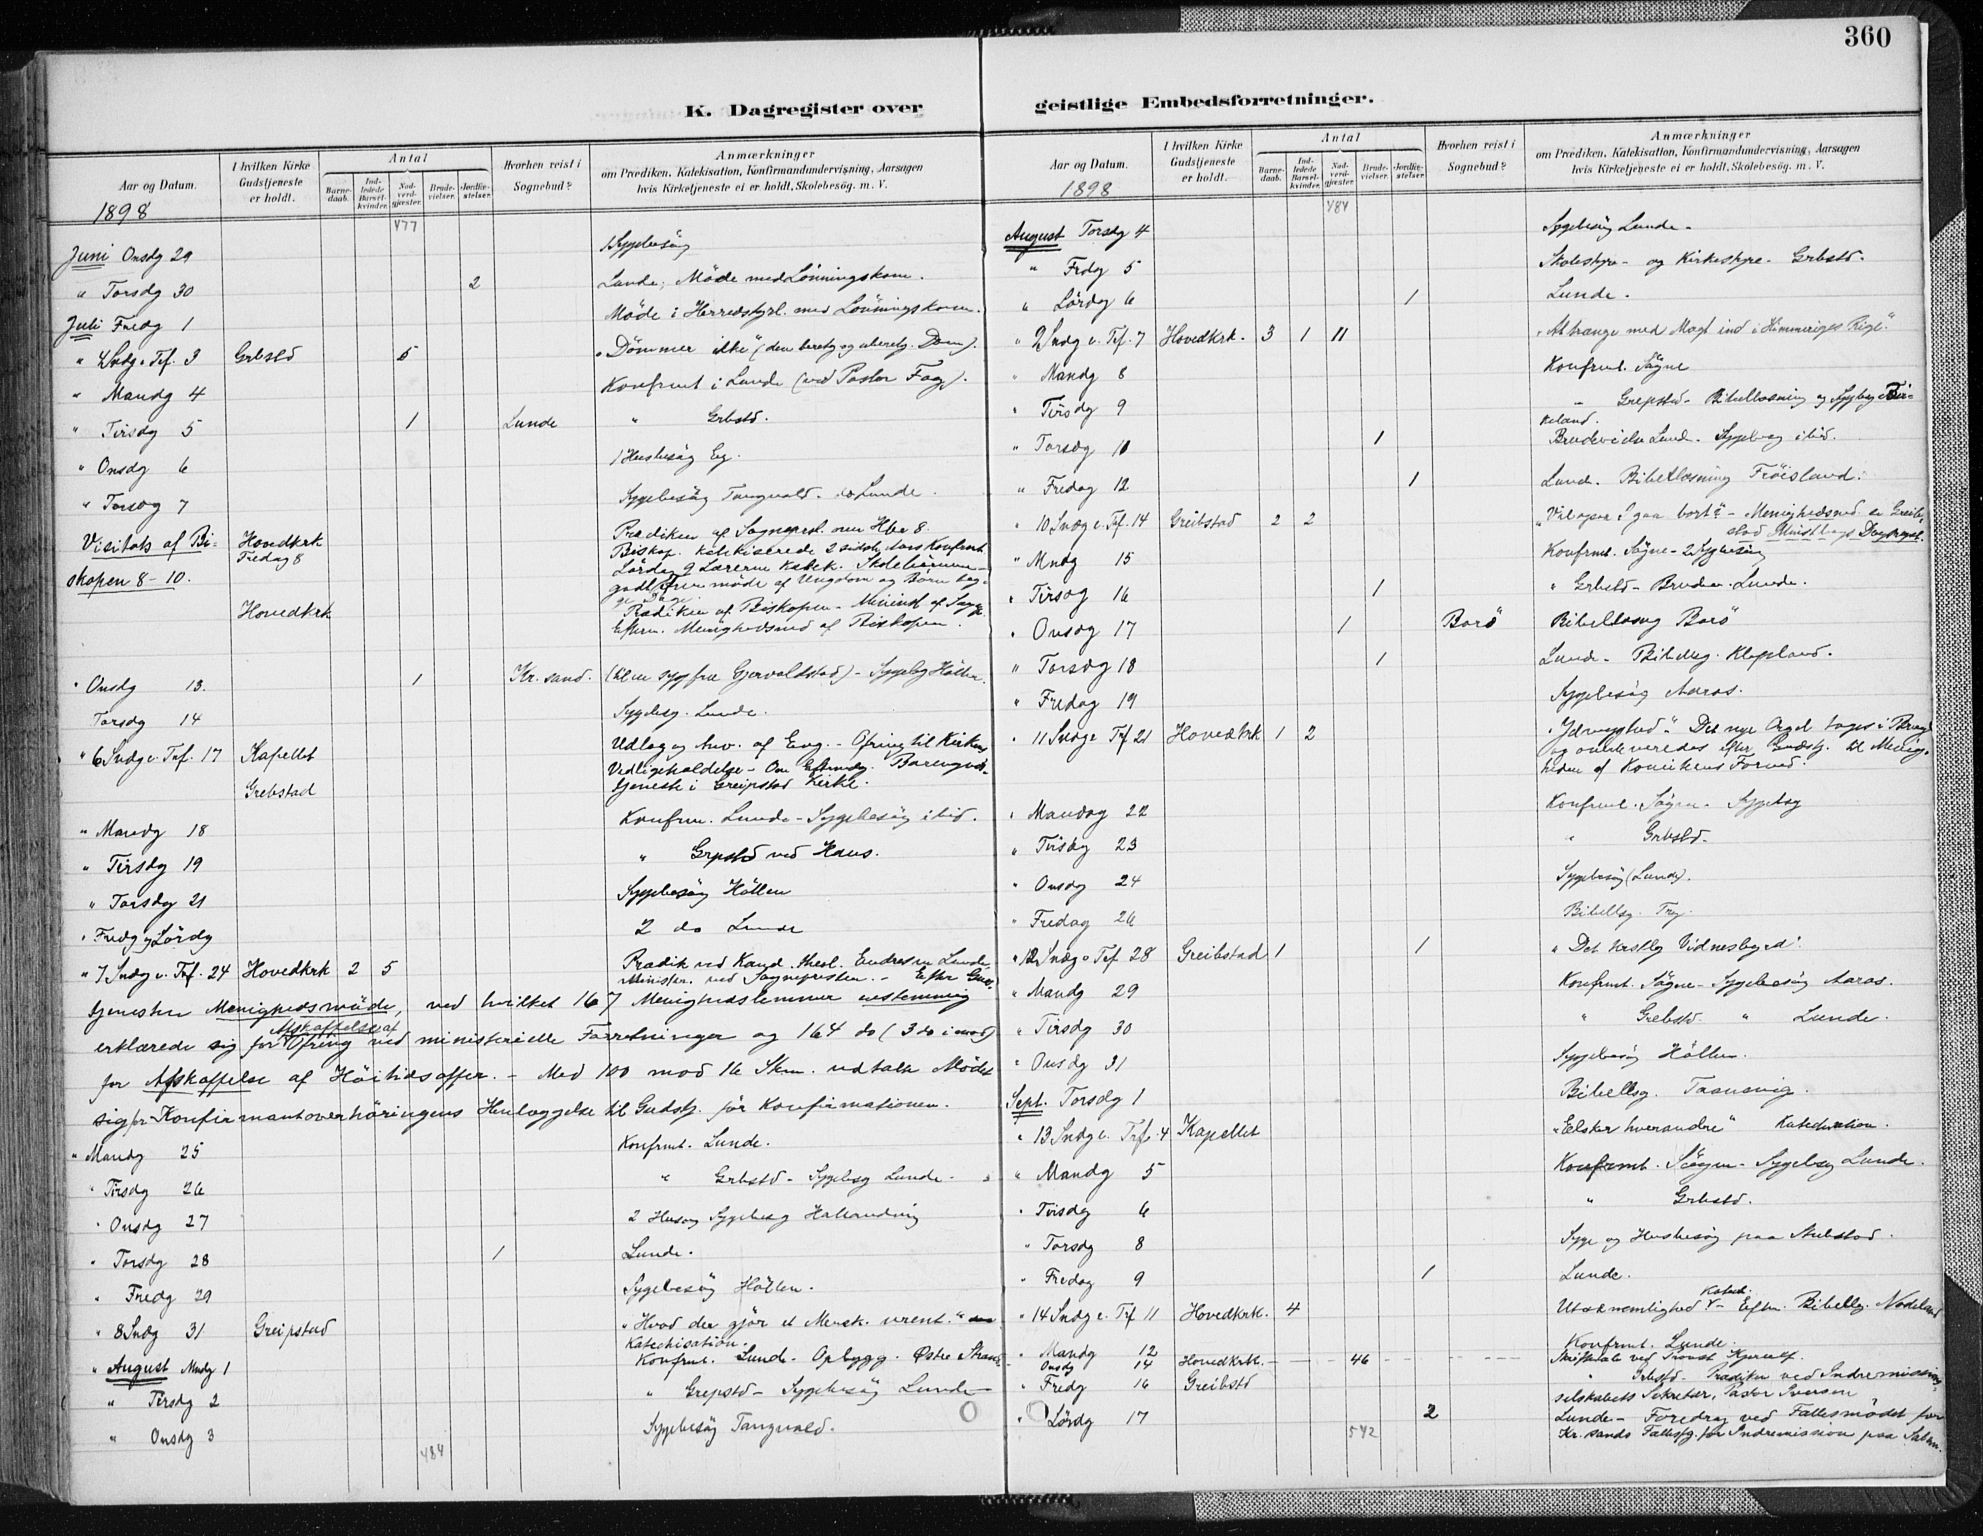 360
K. Dagregister over geistlige Embedsforretninger.
Aar og Datum.
I hvilken Kirke Gudstjeneste er holdt.
Antal
Barnedaab.
Indledede Barselkvinder.
Nadverdgjæster.
Brudevielser.
Jordfæstelser.
Hvorhen reist i Sognebud?
Anmærkninger
om Prædiken, Katekisation, Konfirmandundervisning, Aarsagen
hvis Kirketjeneste ei er holdt, Skolebesøg. m. V.
1898
477
Juni Onsdg 29 Sygebesøg
" Torsdg 30 2 Lunde; Møde med Lønningskom.
Juli Fredg 1 Møde i Herredstyrl. med Lønningskom.
" 4 Sndg. Tnf. 3 Grbstd 5 "Dømmer ikke" (den
" Mandg 4 Konfrmt i Lunde (ved Pastor Fog).
" Tirsdg 5 1 Lunde " Grbstd.
" Onsdg 6 1 Husbesøg Eg.
" Torsdg 7 Sygebesøg Tangvald. do Lunde.
Visitats af Bi- Hovedkrk Prædiken af Sognepræst. om Hbr 8.
Fredag 8 Biskop. katekiserede
skopen 8-10. Lørdag 9
møde af Ungdom og Børn
Hovedkrk Prædiken af Biskopen - Minist. af Sogn
Eftrm. Menighedsmød af Biskopen.
" Onsdg 13. 1 Kr. sand. Sygebsg Høllen.
Torsdg 14 Sygebsg. Lunde.
" 6 Sndg e. Tnf. 17 Kapellet Udlæg og Anv. af Evg. - Ofring til Kirkens
Vedligeholdelse - Om Eftrmdg. Barnegud-
Grebstad tjeneste i Greipstad Kirke.
" Mandg 18 Konfrm. Lunde - Sygebesøg ibid.
" Tirsdg 19 " Grpstd ved Haus.
" Torsdg 21 Sygebesøg Høllen
" Fredg og Lørdg 2 do Lunde
" 7 Sndg e. Tnf. 24 Hovedkrk 2 5 Prædik ved Kand. theol. Endresen Lunde,
Minister. ved Sognepresten. - Efter Guds-
tjenesten Menighedsmøde, ved hvilket 167 Menighedslemmer enstemmig
erklærede sig for Afskaffelse af Ofring ved ministerielle Forretninger og 164 do (3 do imod)
for Afskaffelse af Høitidsoffer. - Med 100 mod 16 Stm. udtalte Mødet
sig for Konfirmantoverhøringens Henlæggelse til Gudstj. før Konfirmationen.
" Mandg 25 Konfrmt. Lunde.
" Tirsdg 26 " Grbstd - Sygebsg Lunde.
" Onsdg 27 2 Hus og Sygebesg
" Torsdg 28 1 Lunde.
" Fredg 29 Sygebesøg Høllen.
" 8 Sndg 31 Greipstad "Hvad der gjør et Mensk. urent."
Katechisation.
" August Mndg 1 Konfrmt. Lunde - Opbygg. Østre
" Tirsdg 2 " Grepstd - Sygebesøg Lunde
" Onsdg 3 Sygebesøg Tangvald.
484
Aar og Datum.
I hvilken Kirke Gudstjeneste er holdt.
Antal
Barnedaab.
Indledede Barselkvinder.
Nadverdgjæster.
Brudevielser.
Jordfæstelser.
Hvorhen reist i Sognebud?
Anmærkninger
om Prædiken, Katekisation, Konfirmandundervisning, Aarsagen
hvis Kirketjeneste ei er holdt, Skolebesøg. m. V.
1898
484
August Torsdg 4 Sygebesøg Lunde.
" Frdg 5 Skolestyre- og Kirkestyre- Grbstd.
" Lørdg 6 1 Lunde.
" 9 Sndg e. Tnf. 7 Hovedkrk. 3 1 11 "At trænge med Magt ind i Himmeriges Rige."
" Mandg 8 Konfrmt. Søgne
" Tirsdg 9 " Grepstad - Bibellæsning og Sygbsg Tir-
keland.
" Torsdg 10 1 Brudevielse Lund. Sygebsg ibid.
" Fredag 12 1 Lund. Bibellæsning Frøisland.
" 10 Sndg e. Tnf. 14 Greibstad 2 2 "Vil ogsaa I gaa bort?" - Menighedsmød
" Mndg 15 Konfrmt. Søgne - 2 Sygebesøg
" Tirsdg 16 1 " Grbstd - Brudev. Lunde.
" Onsdg 17 1 Borø Bibellæsng Borø
" Torsdg 18 1 Lunde - Klepland.
" Fredag 19 Sygebesøg Aaros.
" 11 Sndg e Tnf 21 Hovedkrk 1 2 "Ydmyghed" - Det nye Orgel toges i Brug
og overleveredes efter Gudstj. til Menig-
heden af Komiteens Formd.
" Mandag 22 Konfrmt. Søgne - Sygebsg
" Tirsdg 23 " Grbstd.
" Onsdg 24 Sygebesøg (Lunde).
" Fredag 26 Bibellsg. Try.
" 12 Sndg e Tnf 28 Greibstad 1 1 "Det kristlg Vidnesbyrd".
" Mandg 29 Konfrmt. Søgne - Sygebesøg Aaros.
" Tirsdg 30 " Grebstd. " Lunde.
" Onsdg 31 Sygebesøg Høllen.
Sept. Torsdg 1 Bibellsg.
" 13 Sndg e. Tnf. 4 Kapellet "Elsker hverandre" Katechisation.
" Mandg 5 Konfrmt. Søgne - Sygebsg Lunde.
" Tirsdg 6 " Grbstd.
" Torsdg 8 Syge og Husbesøg paa
" Fredag 9 1 Lunde.
" 14 Sndg e. Tnf 11 Hovedkrk. 4 Utaknemlighed Katech. - Eftm. Bibellsg. Nodeland
" Mandg 12 Konfrmt. Lunde.
Onsdg 14 Hovedkrk. 46 Skriftetale ved Provst
" Fredg 16 Greibstd " Grbstd - Prædiken ved Indremissions-
selskabets Sekretær, Pastor Iversen
" Lørdg 17 2 Lunde - Foredrag ved Fællesmødet for
Kr. sands Fællesfg. for Indremission paa Salem.
542